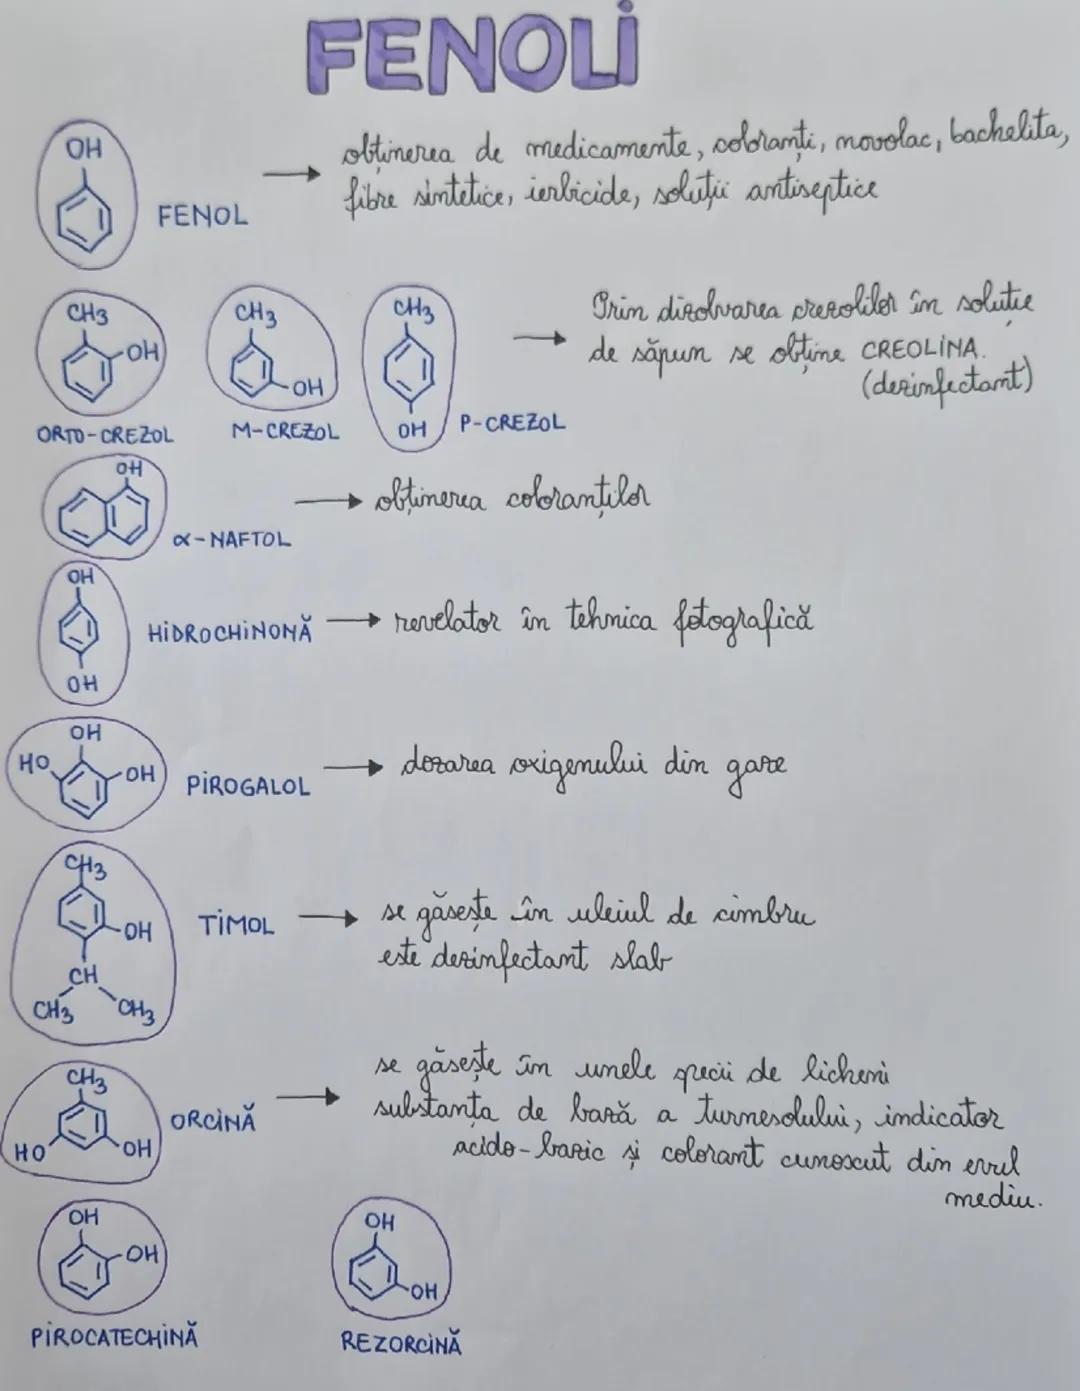 FENOLI
OH
FENOL
→ obținerea de medicamente, coloranți, novolac, bachelita,
fibre sintetice, ierbicide, soluții antiseptice
CH3
OH
ORTO-CREZOL
CH3
OH
M-CREZOL
CH3
OH
P-CREZOL
→ Prin dizolvarea crezolilor în soluție
de săpun se obține CREOLINA.
(dezinfectant)
OH
α-NAFTOL
→ obținerea coloranților
OH
OH
HIDROCHINONĂ → revelator în tehnica fotografică
OH
HO
OH
PIROGALOL → dozarea oxigenului din gaze
CH3
OH
CH
CH3 CH3
TIMOL → se găsește în uleiul de cimbru
este dezinfectant slab
CH3
HO OH
ORCINĂ → se găsește în unele specii de licheni
substanța de bază a turnesolului, indicator
acido-bazic și colorant cunoscut din evul
mediu.
OH
OH
PIROCATECHINĂ
OH
OH
REZORCINĂ